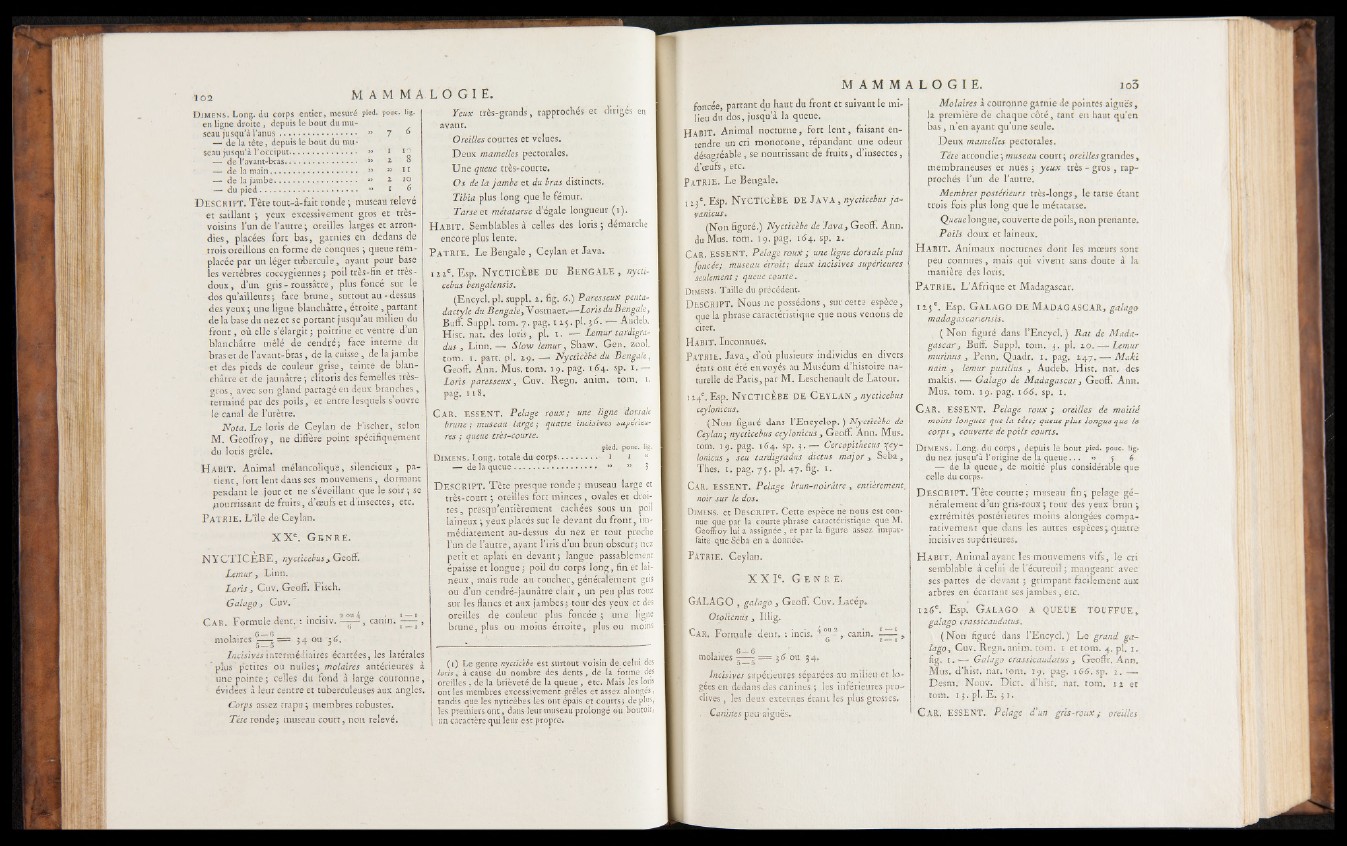 102 MAMMALOGIE.
DIMENS. Long. du corps entier, mesuré pied. pouc. lig.
en ligne droite, depuis le bout du mu-
seau jusqu'à l'anus ................ » 7 6
— de la tête, depuis le bout du mu-
seau jusqu'à l'occiput............... » 1
— de l'avant-bras................ » 2 8
— de la main................... » » 11
— de la jambe.................. » 2 10
— du pied..................... » 1 6
DESCRIPT. Tête tout-à-fait ronde; museau relevé
et saillant ; yeux excessivement gros et très-
voisins l'un de l'autre; oreilles larges et arron-
dies, placées fort bas, garnies en dedans de
trois oreillons en forme de conques ; queue rem-
placée par un léger tubercule, ayant pour base
les vertèbres coccygiennes; poil très-fin et très-
doux, d'un gris-roussâtre, plus foncé sur le
dos qu'ailleurs; face brune, surtout au-dessus
des yeux; une ligne blanchâtre, étroite, partant
de la base du nez et se portant jusqu'au milieu du
front, où elle s'élargit; poitrine et ventre d'un
blanchâtre mêlé de cendré; face interne du
bras et de l'avant-bras, de la cuisse, de la jambe
et des pieds de couleur grise, teinte de blan-
châtre et de jaunâtre; clitoris des femelles très-
gros, avec son gland partagé en deux branches,
terminé par des poils, et entre lesquels s'ouvre
le canal de l'urètre.
Nota. Le loris de Ceylan de Fischer, selon
M. Geoffroy, ne diffère point spécifiquement
du loris grêle.
HABIT. Animal mélancolique, silencieux, pa-
tient, fort lent dans ses mouvemens, dormant
pendant le jour et ne s'éveillant que le soir; se
nourrissant de fruits, d'œufs et d'insectes, etc.
PATRIE. L'île de Ceylan.
XXe. GENRE.
NYCTICÈBE, nycticebus, Geoff.
Lemur, Linn.
Loris, Cuv. Geoff. Fisch.
Galago, Cuv.
CAR. Formule dent. : incisiv. 2 ou 4/6, canin. 1—1/1—1,
molaires 6—6/5—5 = 34 ou 36.
Incisives intermédiaires écartées, les latérales
plus petites ou nulles; molaires antérieures à
une pointe; celles du fond à large couronne,
évidées à leur centre et tuberculeuses aux angles.
Corps assez trapu; membres robustes.
Tête ronde; museau court, non relevé.
Yeux très-grands, rapprochés et dirigés en
avant.
Oreilles courtes et velues.
Deux mamelles pectorales.
Une queue très-courte.
Os de la jambe et du bras distincts.
Tibia plus long que le fémur.
Tarse et métatarse d'égale longueur (1).
HABIT. Semblables à celles des loris; démarche
encore plus lente.
PATRIE. Le Bengale, Ceylan et Java.
122e. Esp. NYCTICÈBE DU BENGALE, nycti-
cebus bengalensis.
(Encycl. pl. suppl. 2. fig. 6.) Paresseux penta-
dactyle du Bengale, Vosmaer.—Loris du Bengale,
Buff. Suppl. tom. 7. pag. 125. pl. 36. — Audeb.
Hist. nat. des loris, pl. 1. — Lemur tardigra-
dus, Linn. — Slow lemur, Shaw. Gen. zool.
tom. 1. part. pl. 29. — Nycticèbe du Bengale,
Geoff. Ann. Mus. tom. 19. pag. 164. sp. 1.—
Loris paresseux, Cuv. Regn. anim. tom. 1.
pag. 118.
CAR. ESSENT. Pelage roux; une ligne dorsale
brune; museau large; quatre incisives supérieu-
res; queue très-courte.
pied. pouc. lig.
DIMENS. Long. totale du corps......... 1 1 »
— de la queue................... » » 3
DESCRIPT. Tête presque ronde; museau large et
très-court; oreilles fort minces, ovales et droi-
tes, presqu'entièrement cachées sous un poil
laineux; yeux placés sur le devant du front, im-
médiatement au-dessus du nez et tout proche
l'un de l'autre, ayant l'iris d'un brun obscur; nez
petit et aplati en devant; langue passablement
épaisse et longue; poil du corps long, fin et lai-
neux, mais rude au toucher, généralement gris
ou d'un cendré-jaunâtre clair, un peu plus roux
sur les flancs et aux jambes; tour des yeux et des
oreilles de couleur plus foncée; une ligne
brune, plus ou moins étroite, plus ou moins
(1) Le genre nycticèbe est surtout voisin de celui des
loris, à cause du nombre des dents, de la forme des
oreilles, de la brièveté de la queue, etc. Mais les loris
ont les membres excessivement grêles et assez alongés,
tandis que les nycticèbes les ont épais et courts; de plus,
les premiers ont, dans leur museau prolongé ou boutoir,
un caractère qui leur est propre.
MAMMALOGIE. 103
foncée, partant du haut du front et suivant le mi-
lieu du dos, jusqu'à la queue.
HABIT. Animal nocturne, fort lent, faisant en-
tendre un cri monotone, répandant une odeur
désagréable, se nourrissant de fruits, d'insectes,
d'œufs, etc.
PATRIE. Le Bengale.
123e. Esp. NYCTICÈBE DE JAVA, nycticebus ja-
vanicus.
(Non figuré.) Nycticèbe de Java, Geoff. Ann.
du Mus. tom. 19. pag. 164. sp. 2.
CAR. ESSENT. Pelage roux; une ligne dorsale plus
foncée; museau étroit; deux incisives supérieures
seulement; queue courte.
DIMENS. Taille du précédent.
DESCRIPT. Nous ne possédons, sur cette espèce,
que la phrase caractéristique que nous venons de
citer.
HABIT. Inconnues.
PATRIE. Java, d'où plusieurs individus en divers
états ont été envoyés au Muséum d'histoire na-
turelle de Paris, par M. Leschenault de Latour.
124e. Esp. NYCTICÈBE DE CEYLAN, nycticebus
ceylonicus.
(Non figuré dans l'Encyclop.) Nycticèbe de
Ceylan; nycticebus ceylonicus, Geoff. Ann. Mus.
tom. 19. pag. 164. sp. 3. — Cercopithecus zey-
lonicus, seu tardigradus dictus major, Seba,
Thes. 1. pag. 75. pl. 47. fig. 1.
CAR. ESSENT. Pelage brun-noirâtre, entièrement
noir sur le dos.
DIMENS. et DESCRIPT. Cette espèce ne nous est con-
nue que par la courte phrase caractéristique que M.
Geoffroy lui a assignée, et par la figure assez impar-
faite que Séba en a donnée.
PATRIE. Ceylan.
XXIe. GENRE.
GALAGO, galago, Geoff. Cuv. Lacép.
Otolicnus, Illig.
CAR. Formule dent. : incis. 4 ou 2/6, canin. 1—1/1—1,
molaires 6—6/5—5 = 36 ou 34.
Incisives supérieures séparées au milieu et lo-
gées en dedans des canines; les inférieures pro-
clives, les deux externes étant les plus grosses.
Canines peu aiguës.
Molaires à couronne garnie de pointes aiguës,
la première de chaque côté, tant en haut qu'en
bas, n'en ayant qu'une seule.
Deux mamelles pectorales.
Tête arrondie; museau court; oreilles grandes,
membraneuses et nues; yeux très-gros, rap-
prochés l'un de l'autre.
Membres postérieurs très-longs, le tarse étant
trois fois plus long que le métatarse.
Queue longue, couverte de poils, non prenante.
Poils doux et laineux.
HABIT. Animaux nocturnes dont les mœurs sont
peu connues, mais qui vivent sans doute à la
manière des loris.
PATRIE. L'Afrique et Madagascar.
125e. Esp. GALAGO DE MADAGASCAR, galago
madagascariensis.
(Non figuré dans l'Encycl.) Rat de Mada-
gascar, Buff. Suppl. tom. 3. pl. 20. — Lemur
murinus, Penn. Quadr. 1. pag. 247. — Maki
nain, lemur pusillus, Audeb. Hist. nat. des
makis. — Galago de Madagascar, Geoff. Ann.
Mus. tom. 19. pag. 166. sp. 1.
CAR. ESSENT. Pelage roux; oreilles de moitié
moins longues que la tête; queue plus longue que le
corps, couverte de poils courts.
DIMENS. Long. du corps, depuis le bout pied. pouc. lig.
du nez jusqu'à l'origine de la queue... » 5 6
— de la queue, de moitié plus considérable que
celle du corps.
DESCRIPT. Tête courte; museau fin; pelage gé-
néralement d'un gris-roux; tour des yeux brun;
extrémités postérieures moins alongées compa-
rativement que dans les autres espèces; quatre
incisives supérieures.
HABIT. Animal ayant les mouvemens vifs, le cri
semblable à celui de l'écureuil; mangeant avec
ses pattes de devant; grimpant facilement aux
arbres en écartant ses jambes, etc.
126e. Esp. GALAGO A QUEUE TOUFFUE,
galago crassicaudatus.
(Non figuré dans l'Encycl.) Le grand ga-
lago, Cuv. Regn. anim. tom. 1 et tom. 4. pl. 1.
fig. 1. — Galago crassicaudatus, Geoffr. Ann.
Mus. d'hist. nat. tom. 19. pag. 166. sp. 1. —
Desm. Nouv. Dict. d'hist. nat. tom. 12 et
tom. 13. pl. E. 31.
CAR. ESSENT. Pelage d'un gris-roux; oreilles